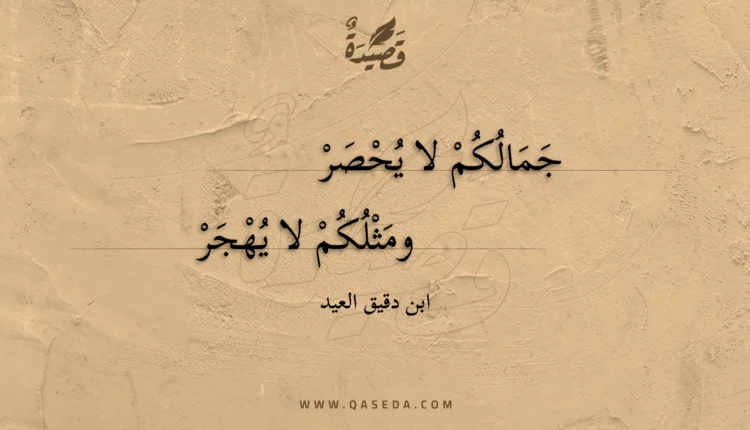 قَصِيدَةٌ
جَمَالُكُمْ لا يُحْصَرْ
ومَثْلُكُمْ لا يُهْجَرْ
ابن دقيق العيد
WWW.QASEDA.COM